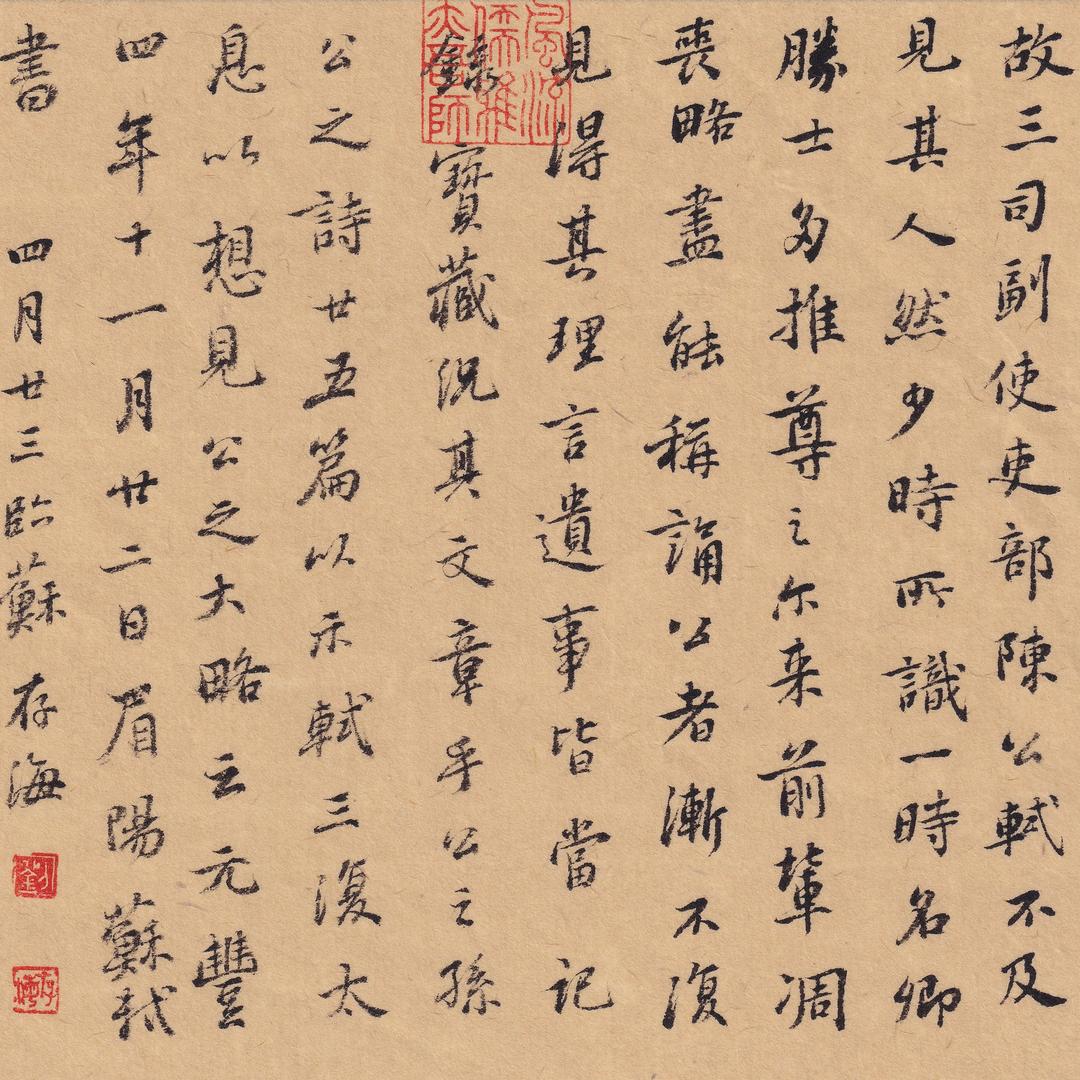 故三司副使吏部陳公軾不及
見其人然少時所識一時名卿
勝士多推尊之尔来前輩凋
喪略盡能稱誦公者漸不復
見得其理言遺事皆當記
錄寶藏況其文章乎公之孫
公之詩廿五篇以示軾三復太
息以想見公之大略云元豐
四年十一月廿二日眉陽蘇軾
書 四月廿三臨蘇 存海
風流儒雅亦吾師
劉
存海